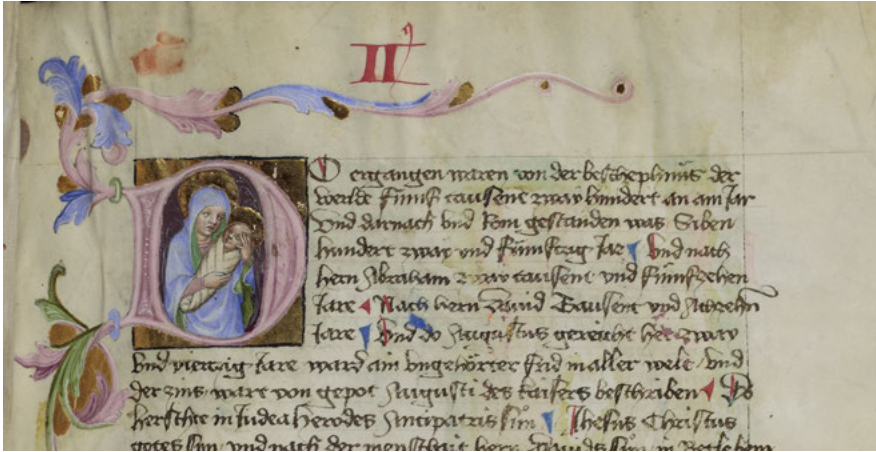 II
D ergangen waren von der beschephnus der
werlde Funff tausent zway hundert an ain Jar
Vnd darnach vnd Rom gestanden was Siben
hundert zway vnd Funfftzig Jar Vnd nach
hern Abraham zway tausent vnd Funfzehen
Jare Nach hern Dauid Tausent vnd
Jare Vnd do Augustus gereicht het zway
vnd viertzig Jare ward ain vngehorter frid in aller welt vnd
der zins ware von gepot Augusti des kaisers beschriben Do
herschte in Judea Herodes Antipatris sun Jhesus Christus
gotes sun vnd nach der menschait hern Dauids sun in Betlehem